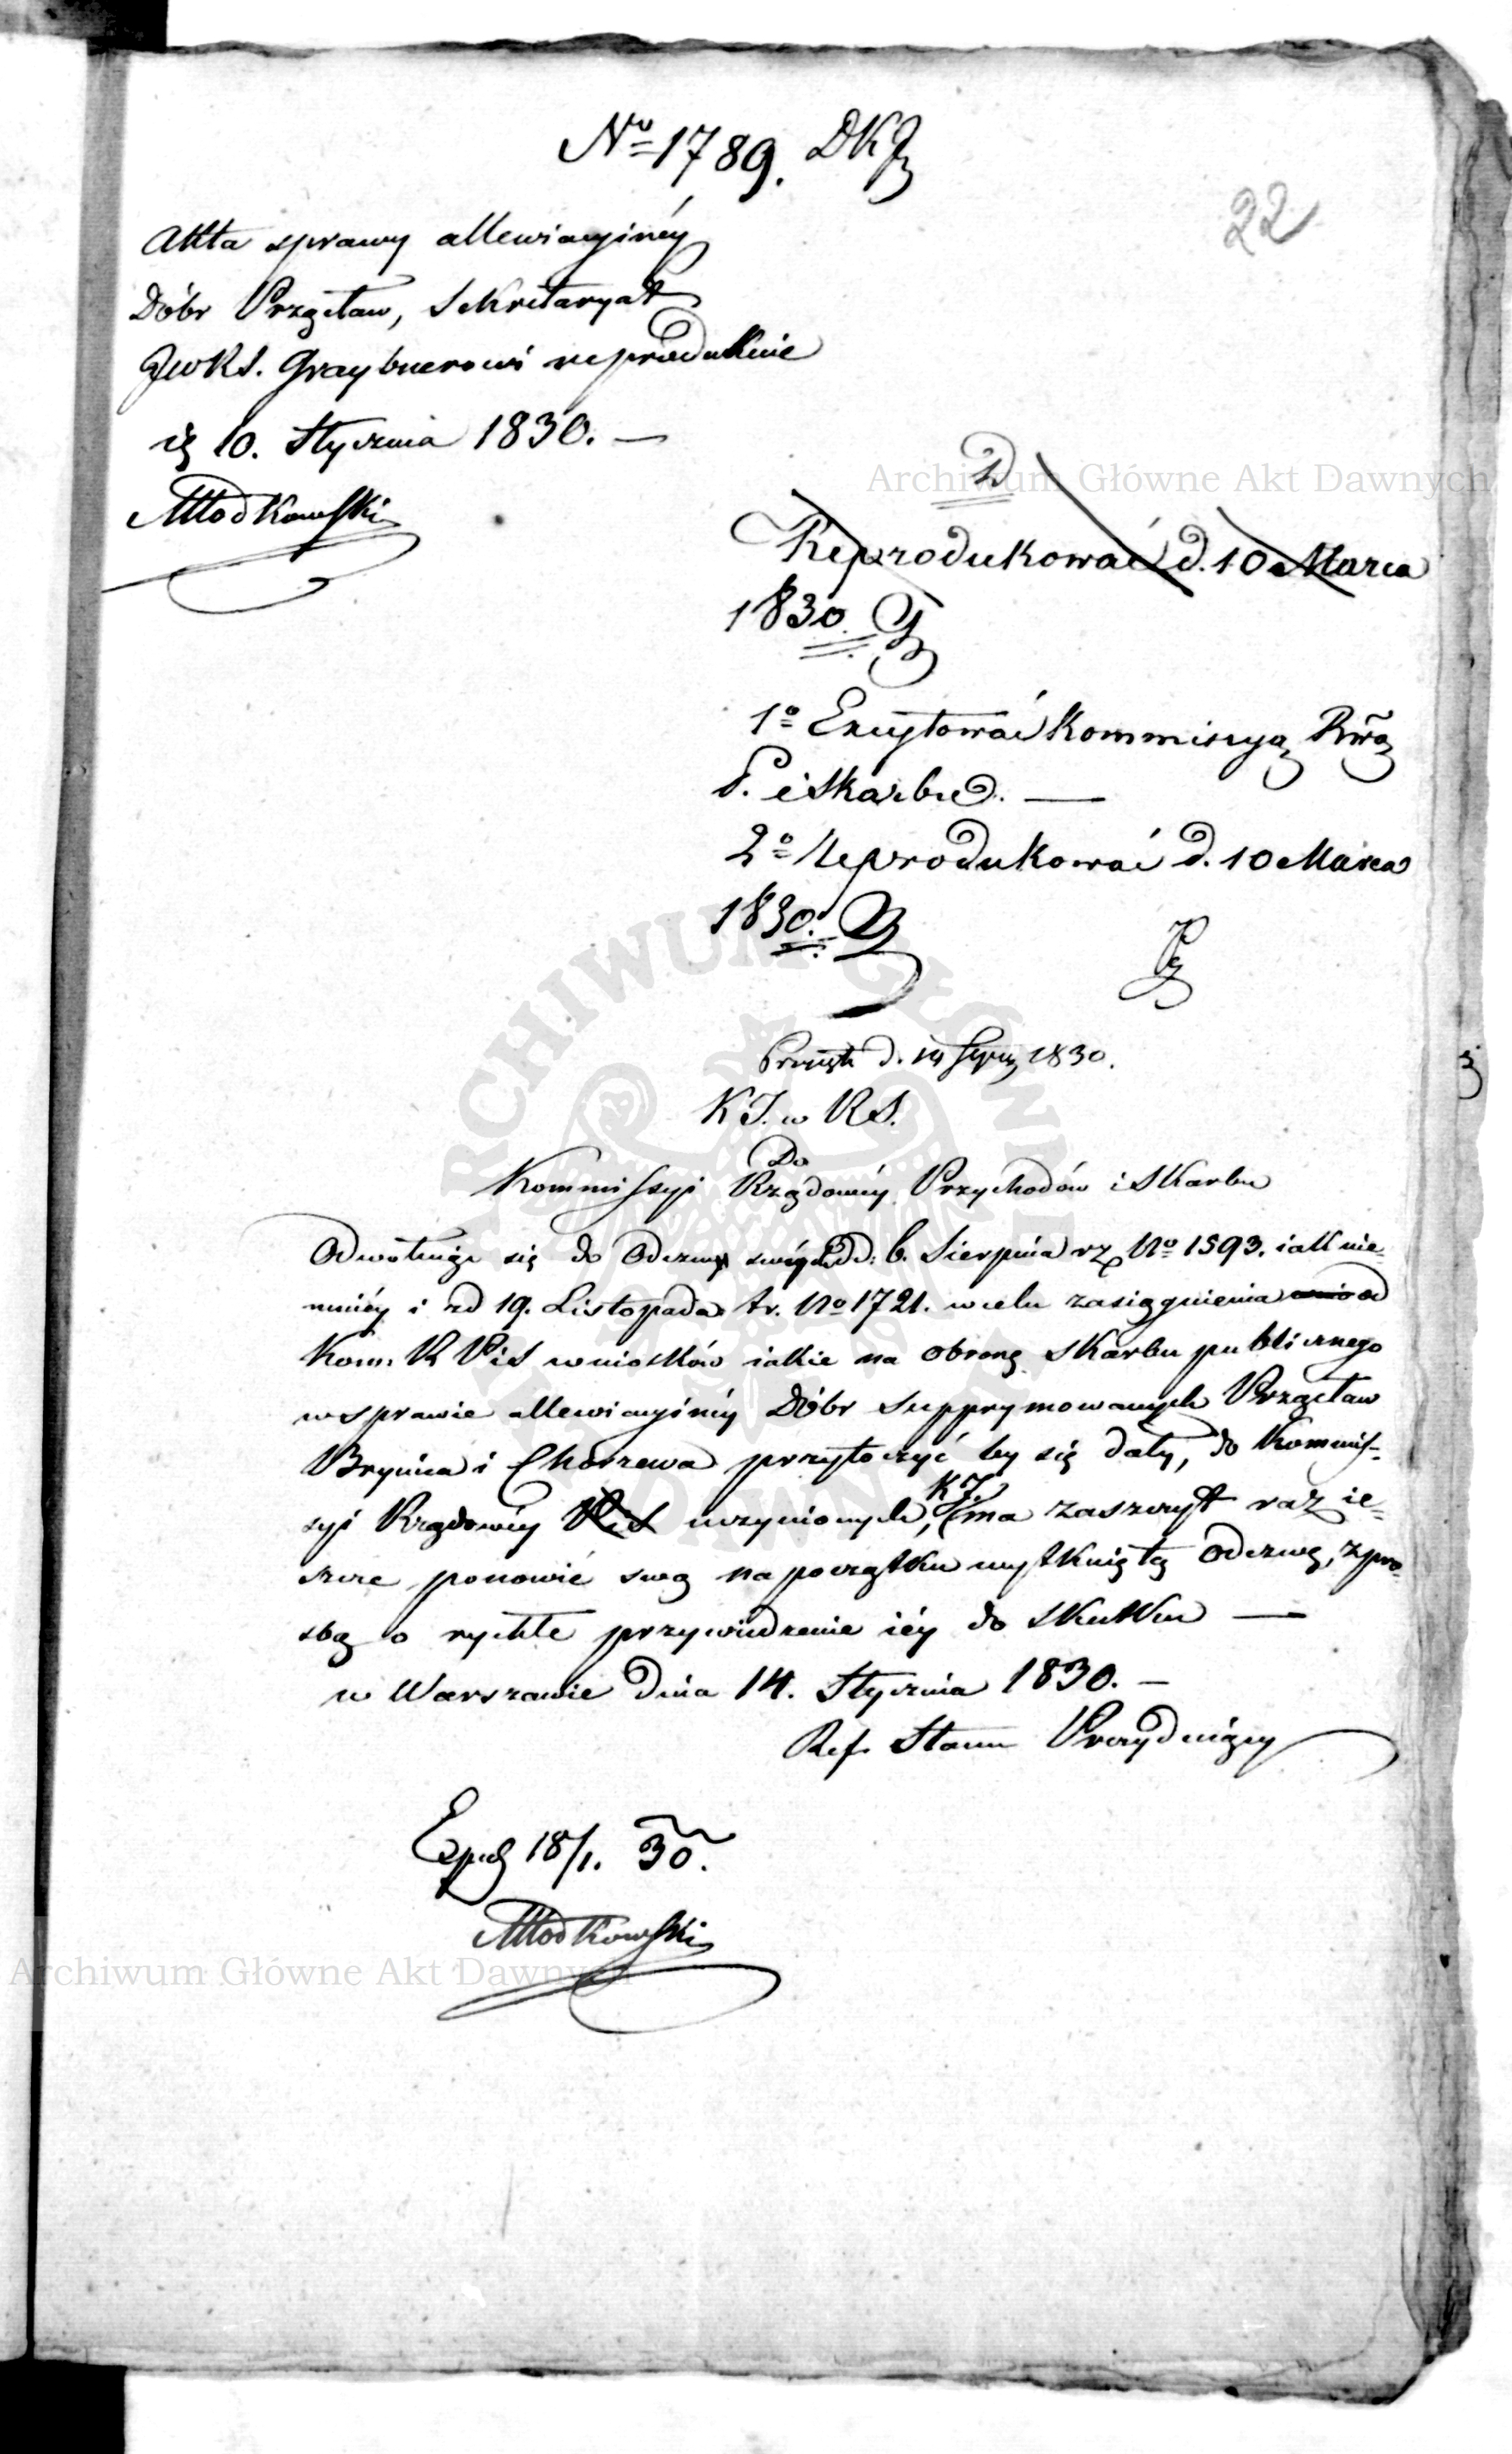 No 1789. DKJ
22
Akta sprawy allewiacyinéy
Dóbr Przącław, Sekretaryat
JWRS. Graybnerowi reprodukuie
ią 10. Stycznia 1830. —
Młodkowski
Archiwum Główne Akt Dawnych
D
Reprodukować d. 10 Marca
1830.
1o Excytować Kommissyą Rwą
P. i Skarbu. —
2o Reprodukować d. 10 Marca
1830.
d. 14 Stycz 1830.
K J. w R S.
Do
Kommissyi Rządowéy Przychodów i Skarbu
Odwołuiąc się do Odezwy swéy dd: 6. Sierpnia rz No 1593. iak nie-
mniéy i zd 19. Listopada tr. No 1721. w celu zasiągnienia od
Kom. R P i S wniosków iakie na obronę Skarbu publicznego
w sprawie allewiacyinéy Dóbr supprymowanych Przącław
Brynica i Chorzewa przytoczyć by się dały, do Kommis-
syi Rządowéy P i S uczynionych, K J. ma zaszczyt raz ie-
szcze ponowić swą na początku wytkniętą Odezwę, z pro-
sbą o rychłe przywiedzenie iéy do Skutku —
w Warszawie dnia 14. Stycznia 1830. —
Ref. Stanu Prezyduiący
Exped 18/1. 30.
Młodkowski
Archiwum Główne Akt Dawnych
ARCHIWUM GŁÓWNE AKT DAWNYCH